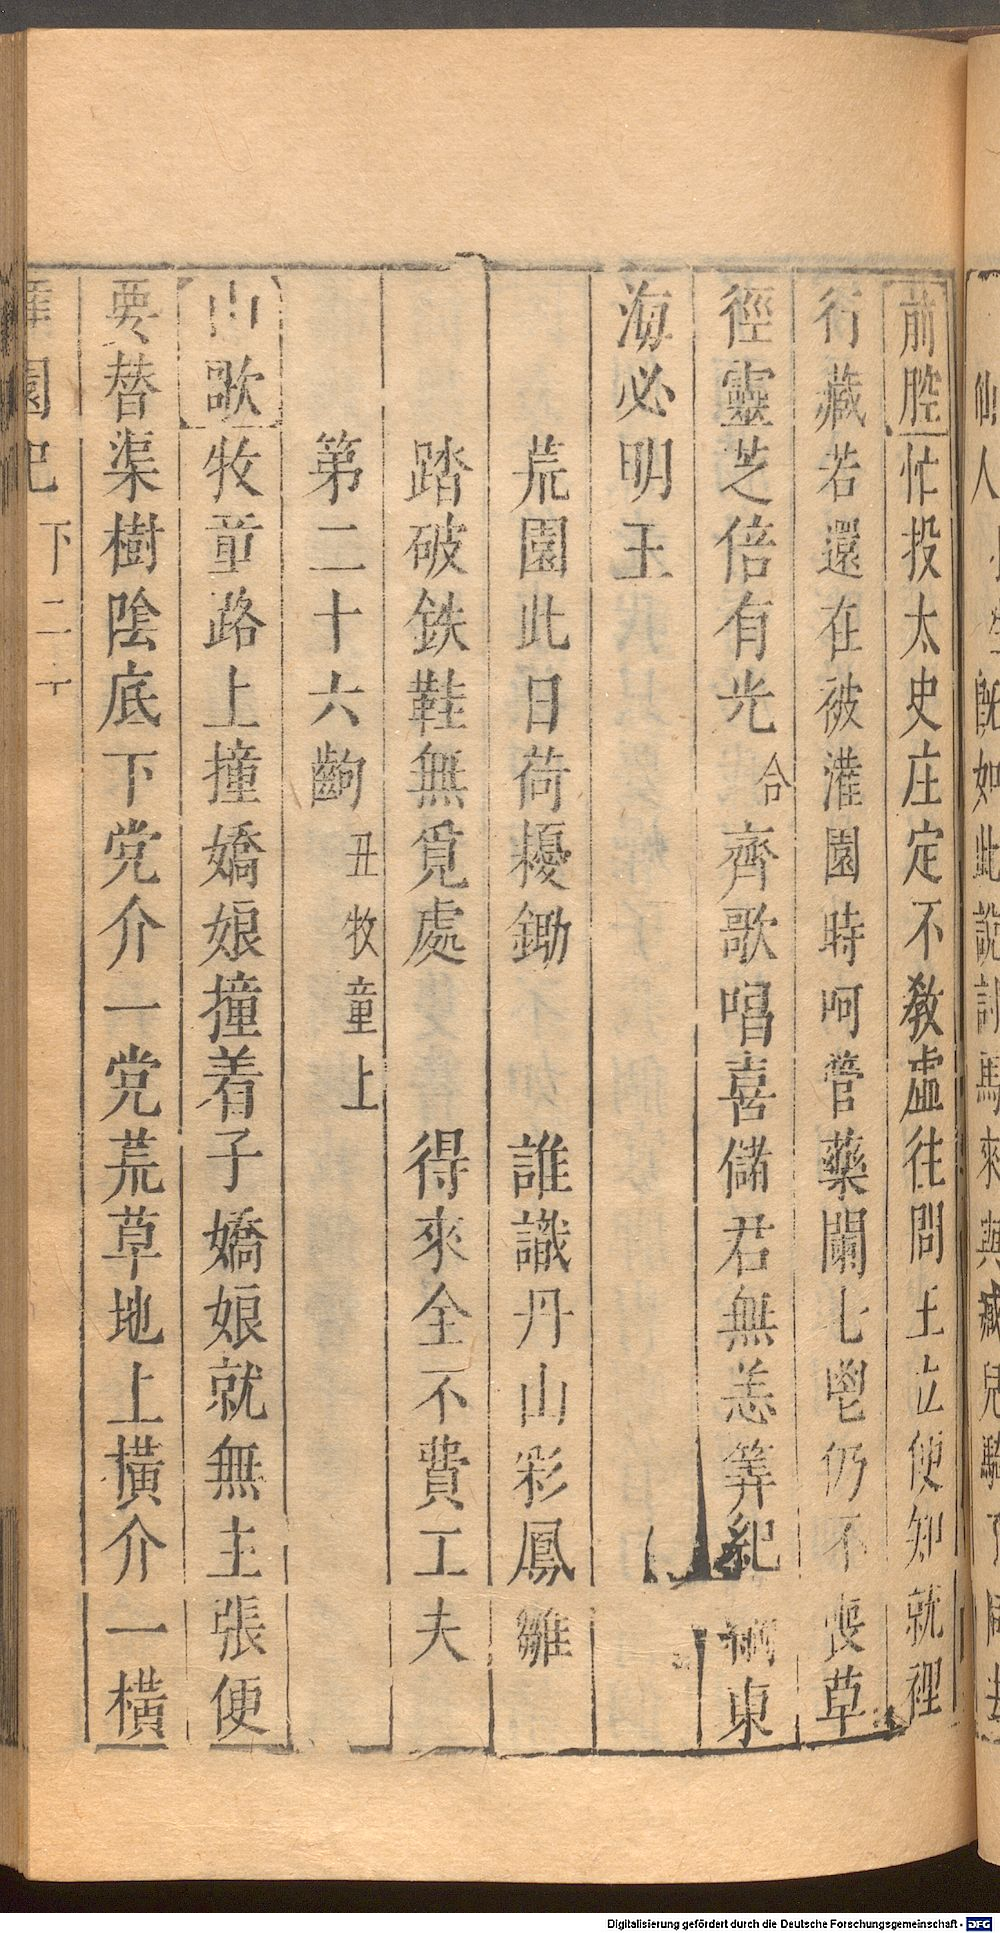 前腔忙投太史庄定不教虛往問土立便知就裡
行藏若還在被灌園時呵管藥闌七鬯仍不喪草
徑靈芝倍有光合齊歌唱喜儲君無恙筭紀綱東
海必明王
荒園此日荷櫌鋤　誰識丹山彩鳳雛
踏破鉄鞋無覓處　得來全不費工夫
第二十六齣丑牧童上
山歌牧童路上撞嬌娘撞着子嬌娘就無主張便
要替渠樹陰底下党介一党荒草地上横介一橫
園記　下二十
仙人　既如此說討馬來與臧兒騎了
Digitalisierung gefördert durch die Deutsche Forschungsgemeinschaft - DFG